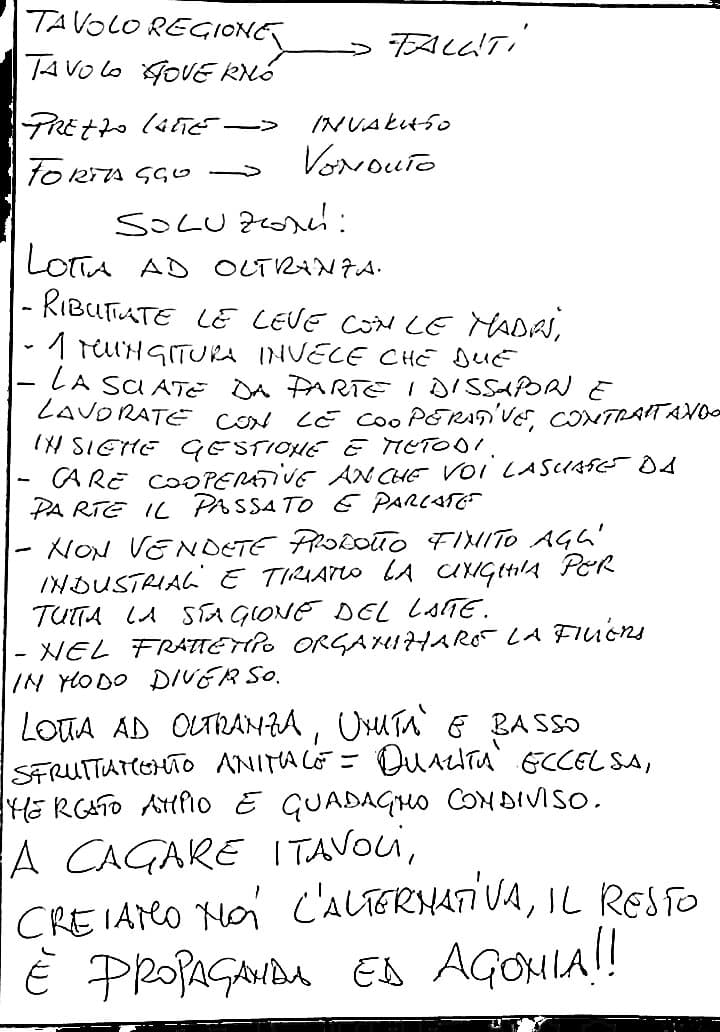 TAVOLO REGIONE
TAVOLO GOVERNO → FALLITI
PREZZO LATTE → INVARIATO
FORMAGGO → VENDUTO
SOLUZIONI:
LOTTA AD OLTRANZA.
- RIBUTTATE LE LEVE CON LE MADRI,
- 1 MUNGITURA INVECE CHE DUE
- LASCIATE DA PARTE I DISSAPORI E
LAVORATE CON LE COOPERATIVE, CONTRATTANDO
INSIEME GESTIONE E METODI.
- CARE COOPERATIVE ANCHE VOI LASCIATE DA
PARTE IL PASSATO E PARLATE
- NON VENDETE PRODOTTO FINITO AGLI
INDUSTRIALI E TIRIAMO LA CINGHIA PER
TUTTA LA STAGIONE DEL LATTE.
- NEL FRATTEMPO ORGANIZZARE LA FILIERA
IN MODO DIVERSO.
LOTTA AD OLTRANZA, UNITÀ E BASSO
SFRUTTAMENTO ANIMALE = QUALITÀ ECCELSA,
MERCATO AMPIO E GUADAGNO CONDIVISO.
A CAGARE I TAVOLI,
CREIAMO NOI L'ALTERNATIVA, IL RESTO
È PROPAGANDA ED AGONIA!!